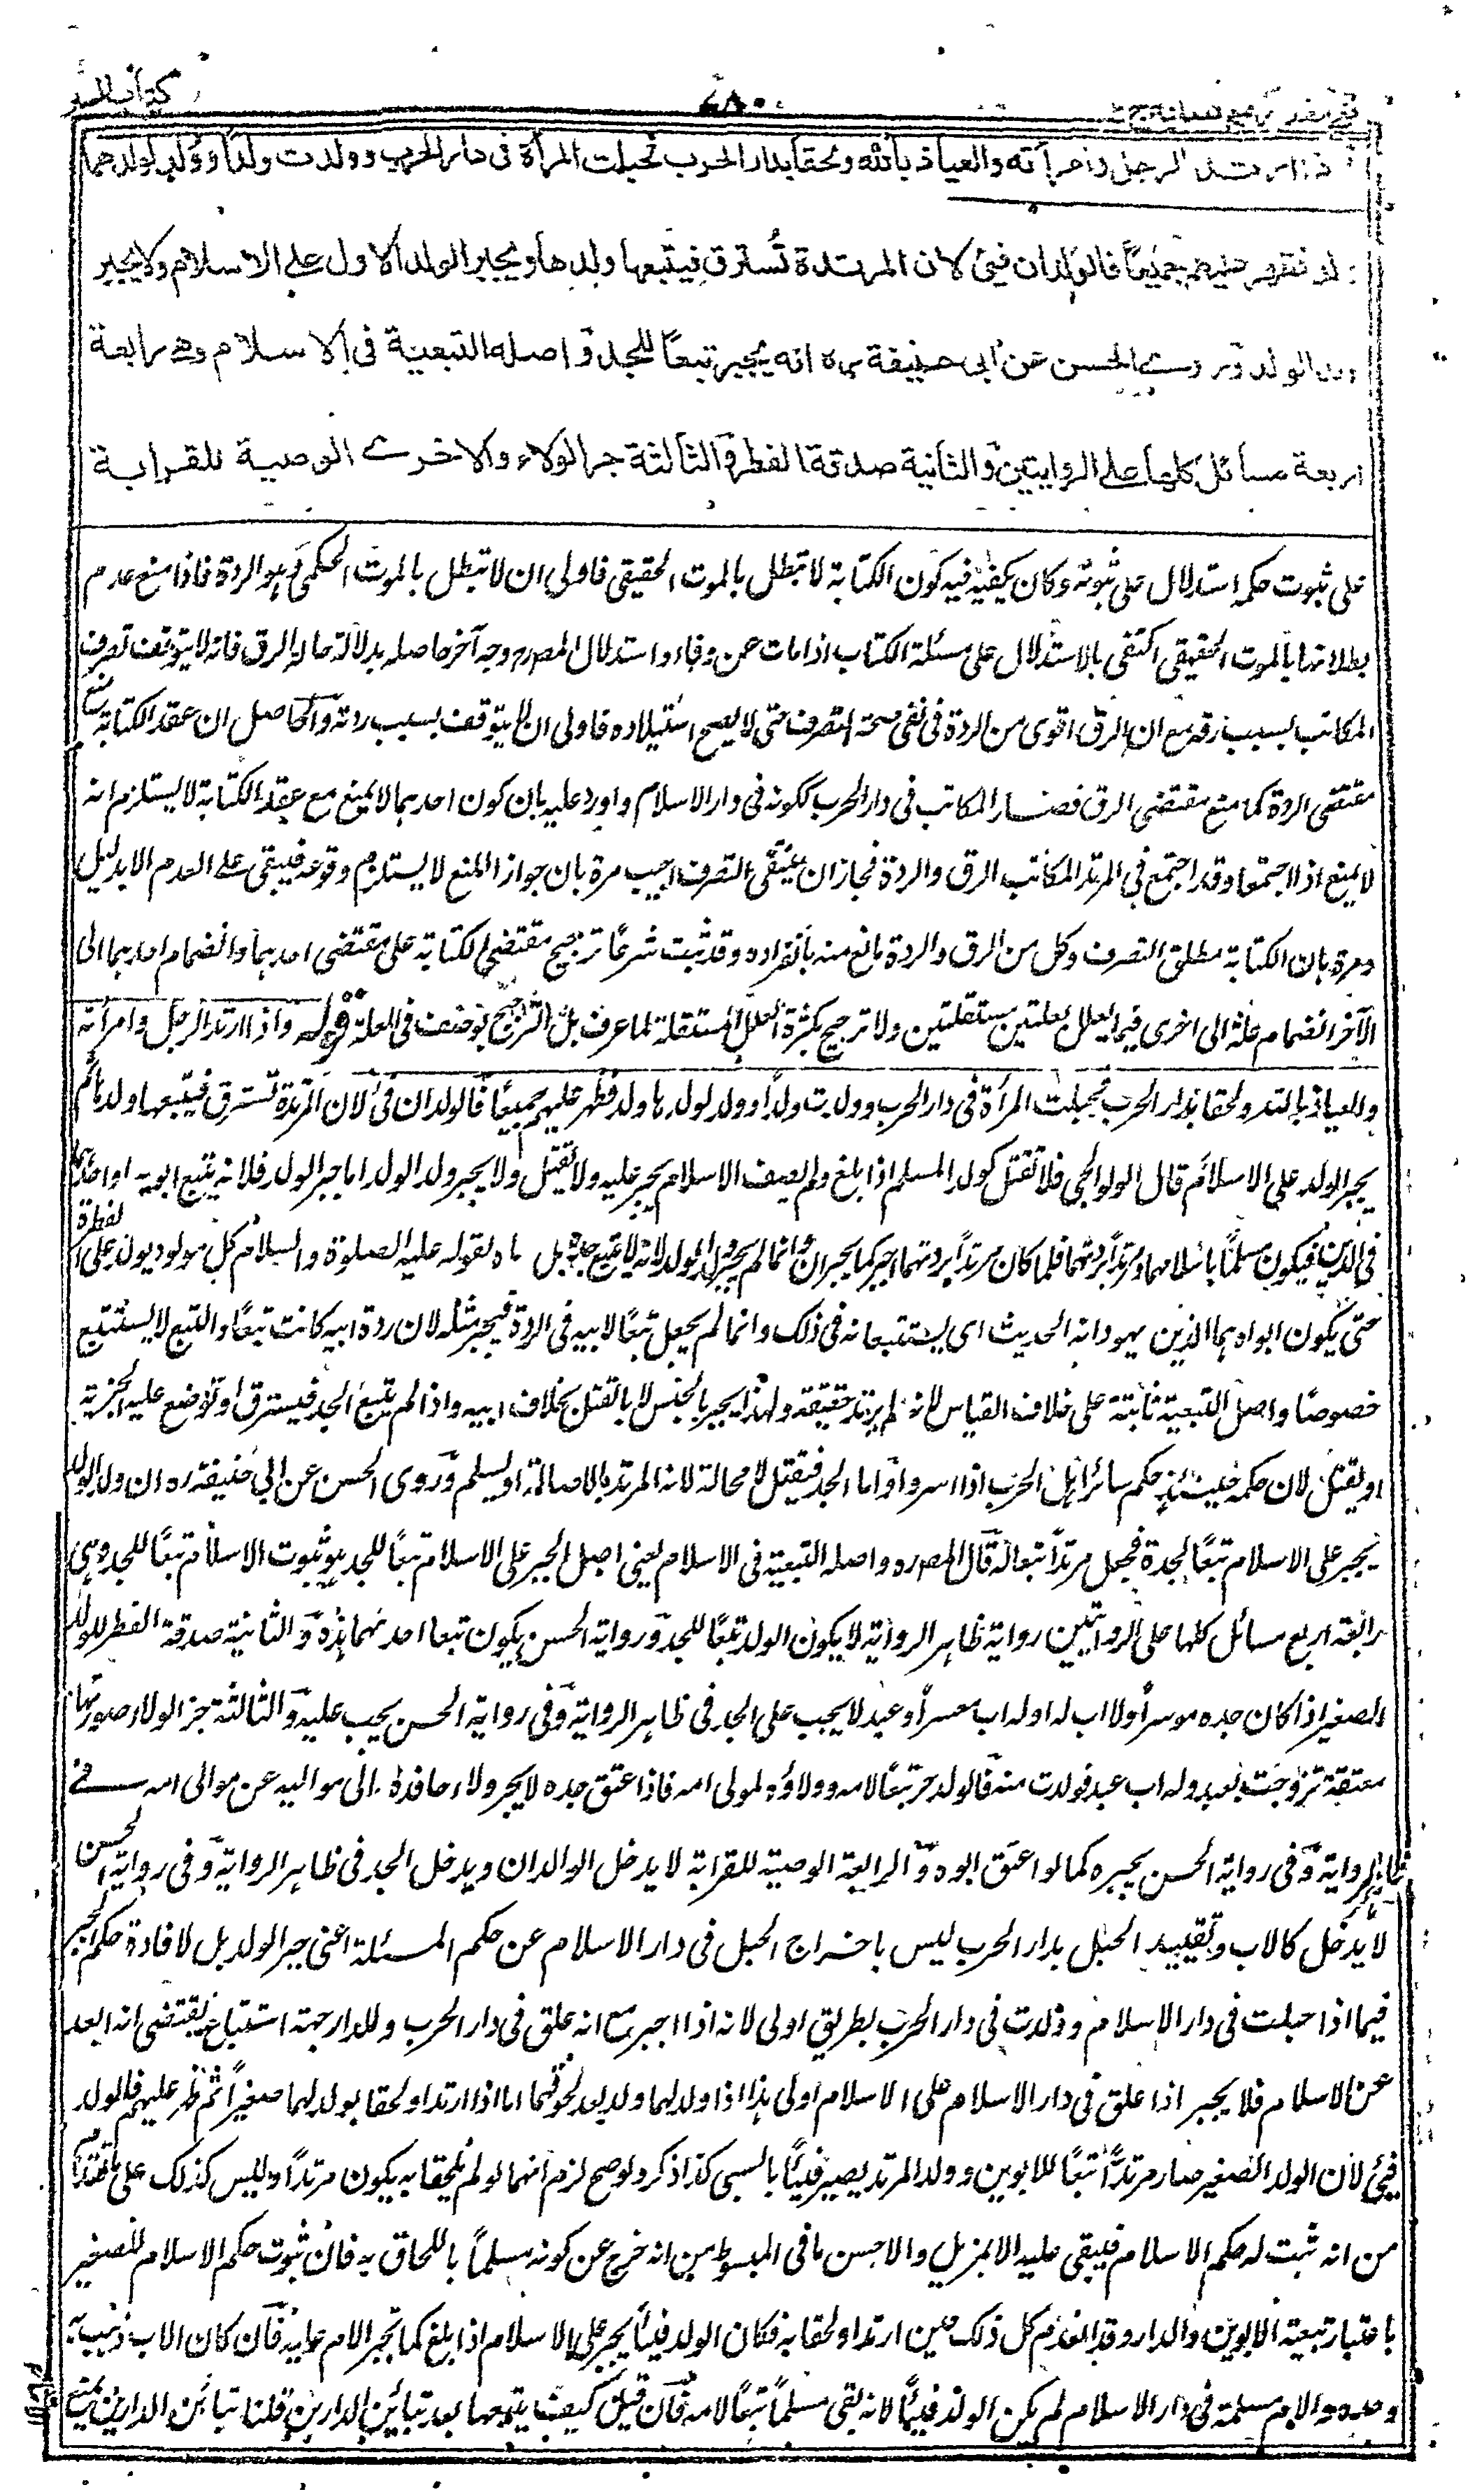 كتاب السير
٧٨٠
واذا ارتد الرجل وامرأته والعياذ بالله ولحقا بدار الحرب فحبلت المرأة في دار الحرب وولدت ولدا وولد لولدهما
ولد فظهر عليهم جميعًا فالولدان فيئ لان المرتدة تُسترق فيتبعها ولدها ويجبر الولد الاول على الاسلام ولا يجبر
ولد الولد وروى الحسن عن ابي حنيفة ره انه يجبر تبعًا للجد واصله التبعية في الاسلام وهي رابعة
اربعة مسائل كلها على الروايتين والثانية صدقة الفطر والثالثة جر الولاء والاخرى الوصية للقرابة
على ثبوت حكم استدلال على ثبوته وكان يكفيه فيه كون الكتابة لا تبطل بالموت الحقيقي فاولى ان لا تبطل بالموت الحكمي وهو الردة فاذا منع عدم
بطلانها بالموت الحقيقي اكتفى بالاستدلال على مسئلة الكتاب اذا مات عن وفاء واستدلال المصرح وجه آخر حاصله بدلالة حالة الرق فانه لا يتوقف تصرف
المكاتب بسبب رقه مع ان الرق اقوى من الردة في نفى صحة التصرف حتى لا يصح استيلاده فاولى ان لا يتوقف بسبب ردته والحاصل ان عقد الكتابة منع
مقتضى الردة كما منع مقتضى الرق فصار المكاتب في دار الحرب ككونه في دار الاسلام واورد عليه بان كون احدهما لا يمنع مع عقد الكتابة لا يستلزم انه
لا يمنع اذا اجتمعا وقد اجتمع في المرتد المكاتب الرق والردة فجاز ان ينتفى التصرف اجيب مرة بان جواز المنع لا يستلزم وقوعه فيبقى على العدم الا بدليل
ومرة بان الكتابة مطلق التصرف وكل من الرق والردة مانع منه بانفراده وقد ثبت شرعًا ترجيح مقتضى الكتابة على مقتضى احدهما وانضمام احدهما الى
الآخر انضمام علة الى اخرى فيما يعلل بعلتين مستقلتين ولا ترجيح بكثرة العلل المستقلة لما عرف بل الترجيح بوصف في العلة قوله واذا ارتد الرجل وامرأته
والعياذ بالله ولحقا بدار الحرب فحبلت المرأة في دار الحرب وولدت ولدًا وولد لولدها ولد فظهر عليهم جميعًا فالولدان فئ لان المرتدة تسترق فيتبعها ولدها ثم
يجبر الولد على الاسلام قال الولوالجى فلا تقتل كولد المسلم اذا بلغ ولم يصف الاسلام يجبر عليه ولا يقتل ولا يجبر ولد الولد اما جبر الولد فلانه يتبع ابويه او احدهما
في الدين فيكون مسلمًا باسلامهما ومرتدًا بردتهما فلما كان مرتدًا بردتهما اجبر كما يجبران وانما لم يجبر ولد الولد لانه لا يتبع جده بل اباه لقوله عليه الصلوة والسلام كل مولود يولد على الفطرة
حتى يكون ابواه هما الذين يهودانه الحديث اى يستتبعانه في ذلك وانما لم يجعل تبعًا لابيه في الردة فيجبر مثله لان ردة ابيه كانت تبعًا والتبع لا يستتبع
خصوصًا واصل التبعية ثابتة على خلاف القياس لانه لم يرتد حقيقة ولهذا يجبر بالحبس لا بالقتل بخلاف ابيه واذا لم يتبع الجد فيسترق او توضع عليه الجزية
او يقتل لان حكمه حينئذ حكم سائر اهل الحرب اذا اسروا واما الجد فيقتل لا محالة لانه المرتد بالاصالة او يسلم وروى الحسن عن ابي حنيفة ره ان ولد الولد
يجبر على الاسلام تبعًا لجده فجعل مرتدًا تبعًا له قال المصره واصله التبعية في الاسلام يعني اصل الجبر على الاسلام تبعًا للجد هو ثبوت الاسلام تبعًا للجد وهى
رابعة اربع مسائل كلها على الروايتين رواية ظاهر الرواية لا يكون الولد تبعًا للجد ورواية الحسن يكون تبعا احدٰها هذه والثانية صدقة الفطر للولد
الصغير اذا كان جده موسرًا ولا اب له او له اب معسر او عبد لا يجب على الجد في ظاهر الرواية وفي رواية الحسن يجب عليه والثالثة جر الولاء صورتها
معتقة تزوجت بعبد وله اب عبد فولدت منه فالولد حر تبعًا لامه وولاؤه لمولى امه فاذا عتق جده لا يجر ولاء حافده الى مواليه عن موالى امه في
ظاهر الرواية وفي رواية الحسن يجره كما لو اعتق ابوه والرابعة الوصية للقرابة لا يدخل الوالدان ويدخل الجد في ظاهر الرواية وفي رواية الحسن
لا يدخل كالاب وتقييد الحبل بدار الحرب ليس باخراج الحبل في دار الاسلام عن حكم المسئلة اعنى جبر الولد بل لافادة حكم الجبر
فيما اذا حبلت في دار الاسلام وولدت في دار الحرب بطريق اولى لانه اذا اجبر مع انه علق في دار الحرب وللدار جهة استتباع يقتضى انه ابعد
عن الاسلام فلا يجبر اذا علق في دار الاسلام على الاسلام اولى هذا اذا ولد لهما ولد بعد لحوقهما اما اذا ارتدا ولحقا بولد لهما صغيرًا ثم ظهر عليهم فالولد
فيئ لان الولد الصغير صار مرتدًا تبعًا للابوين وولد المرتد يصير فيئًا بالسبى كذا ذكر ولو صح لزم انهما لو لم يلحقا به يكون مرتدًا وليس كذلك على ما تقدم
من انه ثبت له حكم الاسلام فيبقى عليه الا بمزيل والاحسن ما في المبسوط من انه خرج عن كونه مسلمًا باللحاق به فان ثبوت حكم الاسلام للصغير
باعتبار تبعية الابوين والدار وقد انعدم كل ذلك حين ارتدا ولحقا به فكان الولد فيئًا يجبر على الاسلام اذا بلغ كما تجبر الام عليه فان كان الاب ذهب به
وحده والام مسلمة في دار الاسلام لم يكن الولد فيئًا لانه بقى مسلمًا تبعًا لامه فان قيل كيف يتبعها بعد تباين الدارين قلنا تباين الدارين يمنع